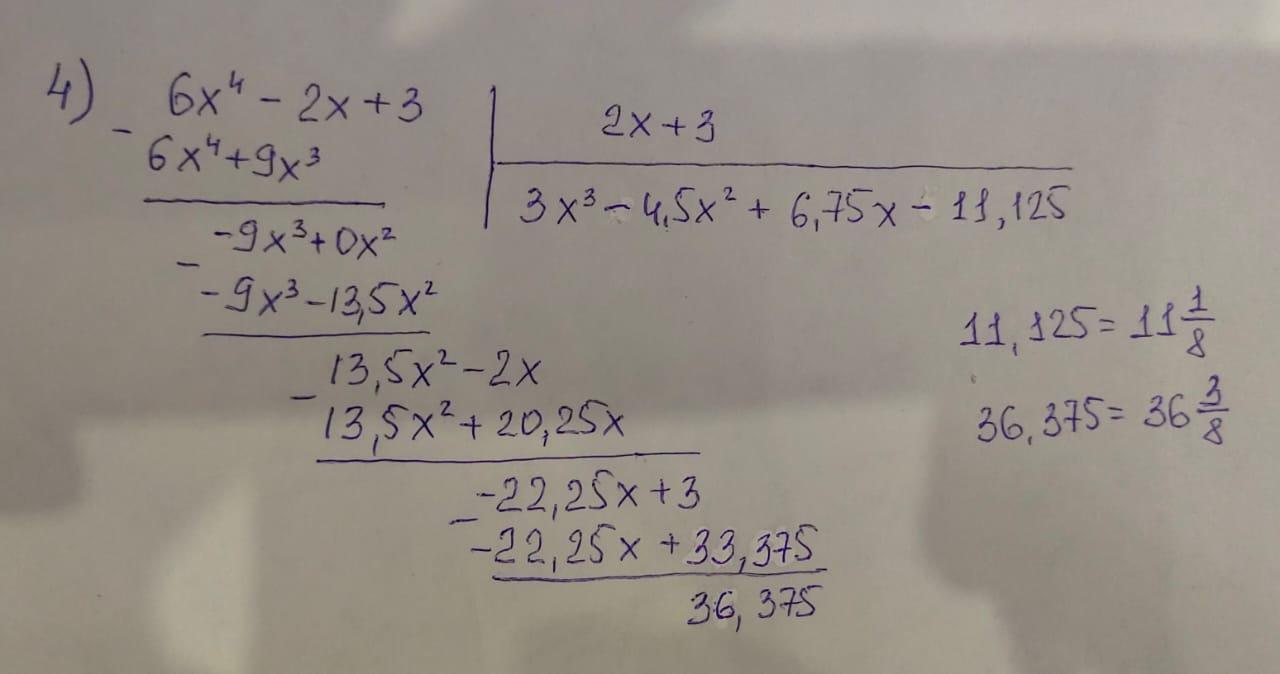 4) 6x⁴ - 2x + 3 | 2x + 3
- 6x⁴ + 9x³ | 3x³ - 4,5x² + 6,75x - 11,125
-9x³ + 0x²
- -9x³ - 13,5x²
13,5x² - 2x
- 13,5x² + 20,25x
-22,25x + 3
- -22,25x + 33,375
36,375
11,125 = 11 1/8
36,375 = 36 3/8